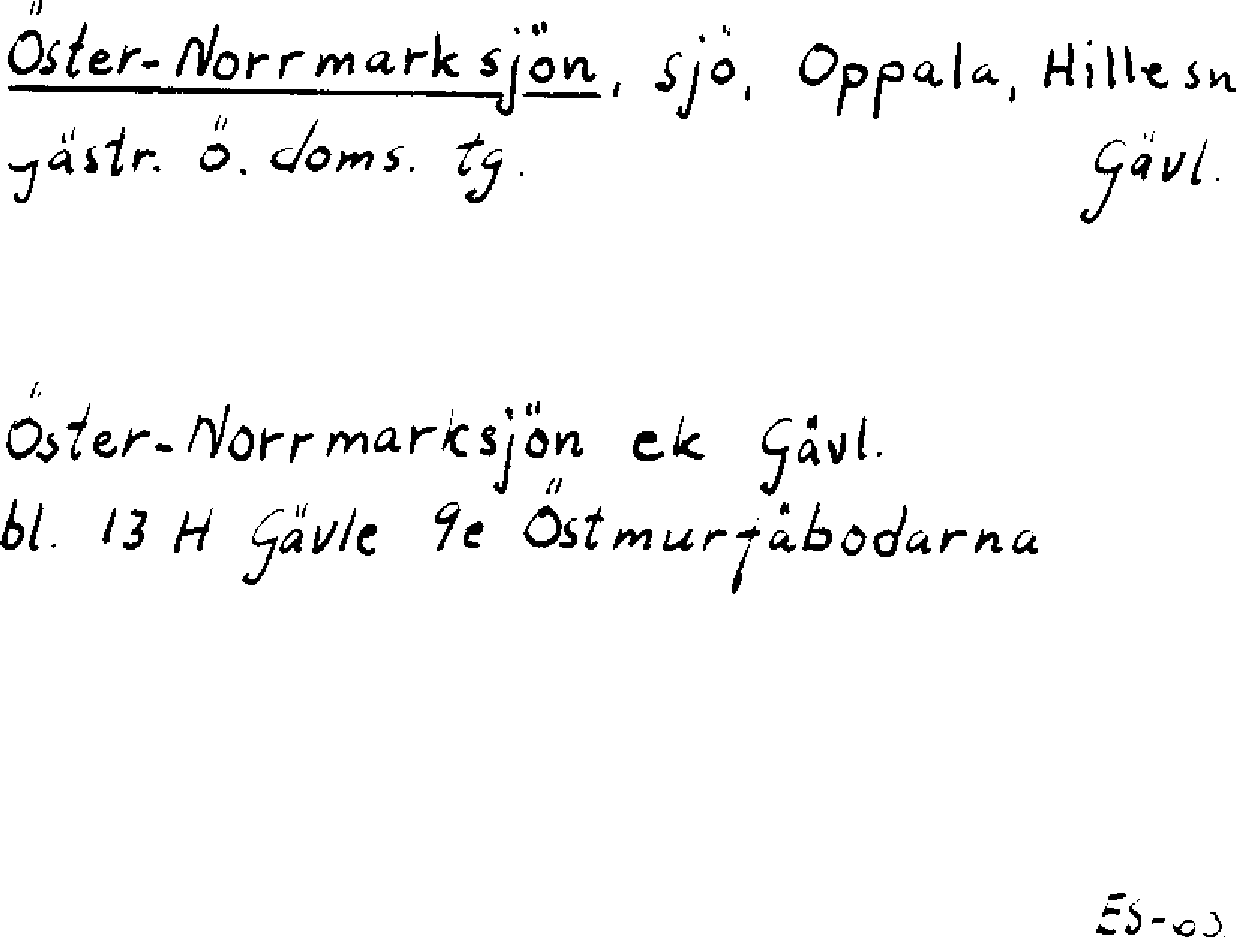 Öster-Norrmarksjön, sjö, Oppala, Hille sn
gästr. ö. doms. tg. Gävl.
Öster-Norrmarksjön ek Gävl.
bl. 13 H Gävle 9e Östmurfåbodarna